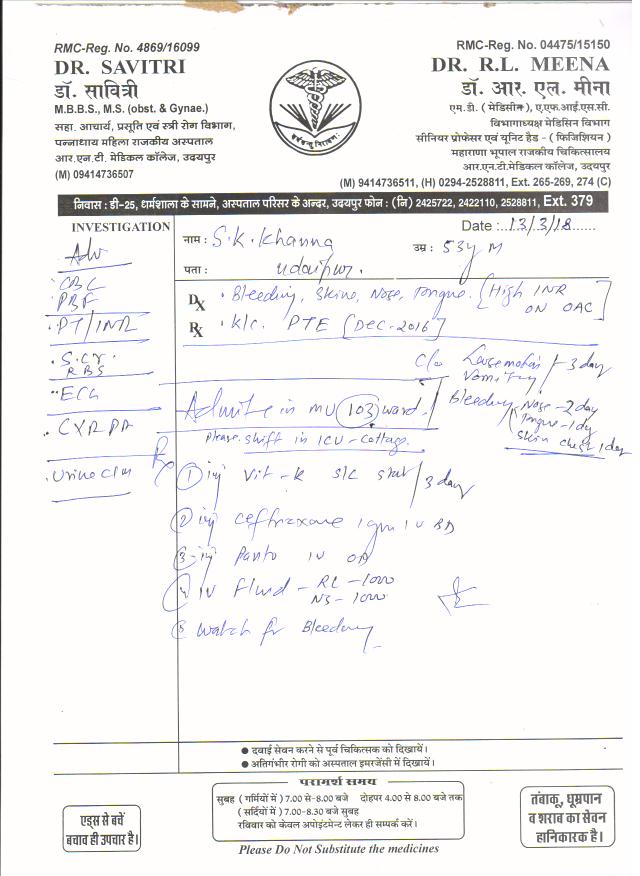 RMC-Reg. No. 4869/16099
DR. SAVITRI
डॉ. सावित्री
M.B.B.S., M.S. (obst. & Gynae.)
सहा. आचार्य, प्रसूति एवं स्त्री रोग विभाग,
पन्नाधाय महिला राजकीय अस्पताल
आर.एन.टी. मेडिकल कॉलेज, उदयपुर
(M) 09414736507
RMC-Reg. No. 04475/15150
DR. R.L. MEENA
डॉ. आर. एल. मीना
एम.डी. ( मेडिसीन), ए.एफ.आई.एस.सी.
विभागाध्यक्ष मेडिसिन विभाग
सीनियर प्रोफेसर एवं यूनिट हैड - ( फिजिशियन )
महाराणा भूपाल राजकीय चिकित्सालय
आर.एन.टी.मेडिकल कॉलेज, उदयपुर
(M) 9414736511, (H) 0294-2528811, Ext. 265-269, 274 (C)
निवास : डी-25, धर्मशाला के सामने, अस्पताल परिसर के अन्दर, उदयपुर फोन : (नि) 2425722, 2422110, 2528811, Ext. 379
INVESTIGATION
Adv
CBC
PBF
PT/INR
S. Cr.
RBS
ECG
CXR PA
Urine C/m
Date : 13/3/18
नाम : S.K. Khanna
उम्र : 53y M
पता : Udaipur.
Dx • Bleeding, Skine, Nose, Tongue. [High INR
ON OAC]
Rx • K/c. PTE [Dec-2016]
C/o Loosemotion - 3 day
Vomiting
Admite in MU 103 ward.
Bleeding Nose - 2 day
Tongue - 1 dy
Skin chest 1 day
Please shift in ICU - Cottage.
Rx
1 inj Vit-K S/C stat / 3 day
2 inj Ceftriaxone 1 gm IV BD
3 - inj Panto IV OD
4 IV Fluid - RL - 1000
NS - 1000
5 Watch for Bleeding
● दवाई सेवन करने से पूर्व चिकित्सक को दिखायें।
● अतिगंभीर रोगी को अस्पताल इमरजेंसी में दिखायें।
एड्स से बचें
बचाव ही उपचार है।
परामर्श समय
सुबह ( गर्मियों में ) 7.00 से-8.00 बजे दोहपर 4.00 से 8.00 बजे तक
( सर्दियों में ) 7.00-8.30 बजे सुबह
रविवार को केवल अपोइंटमेन्ट लेकर ही सम्पर्क करें।
Please Do Not Substitute the medicines
तंबाकू, धूम्रपान
व शराब का सेवन
हानिकारक है।